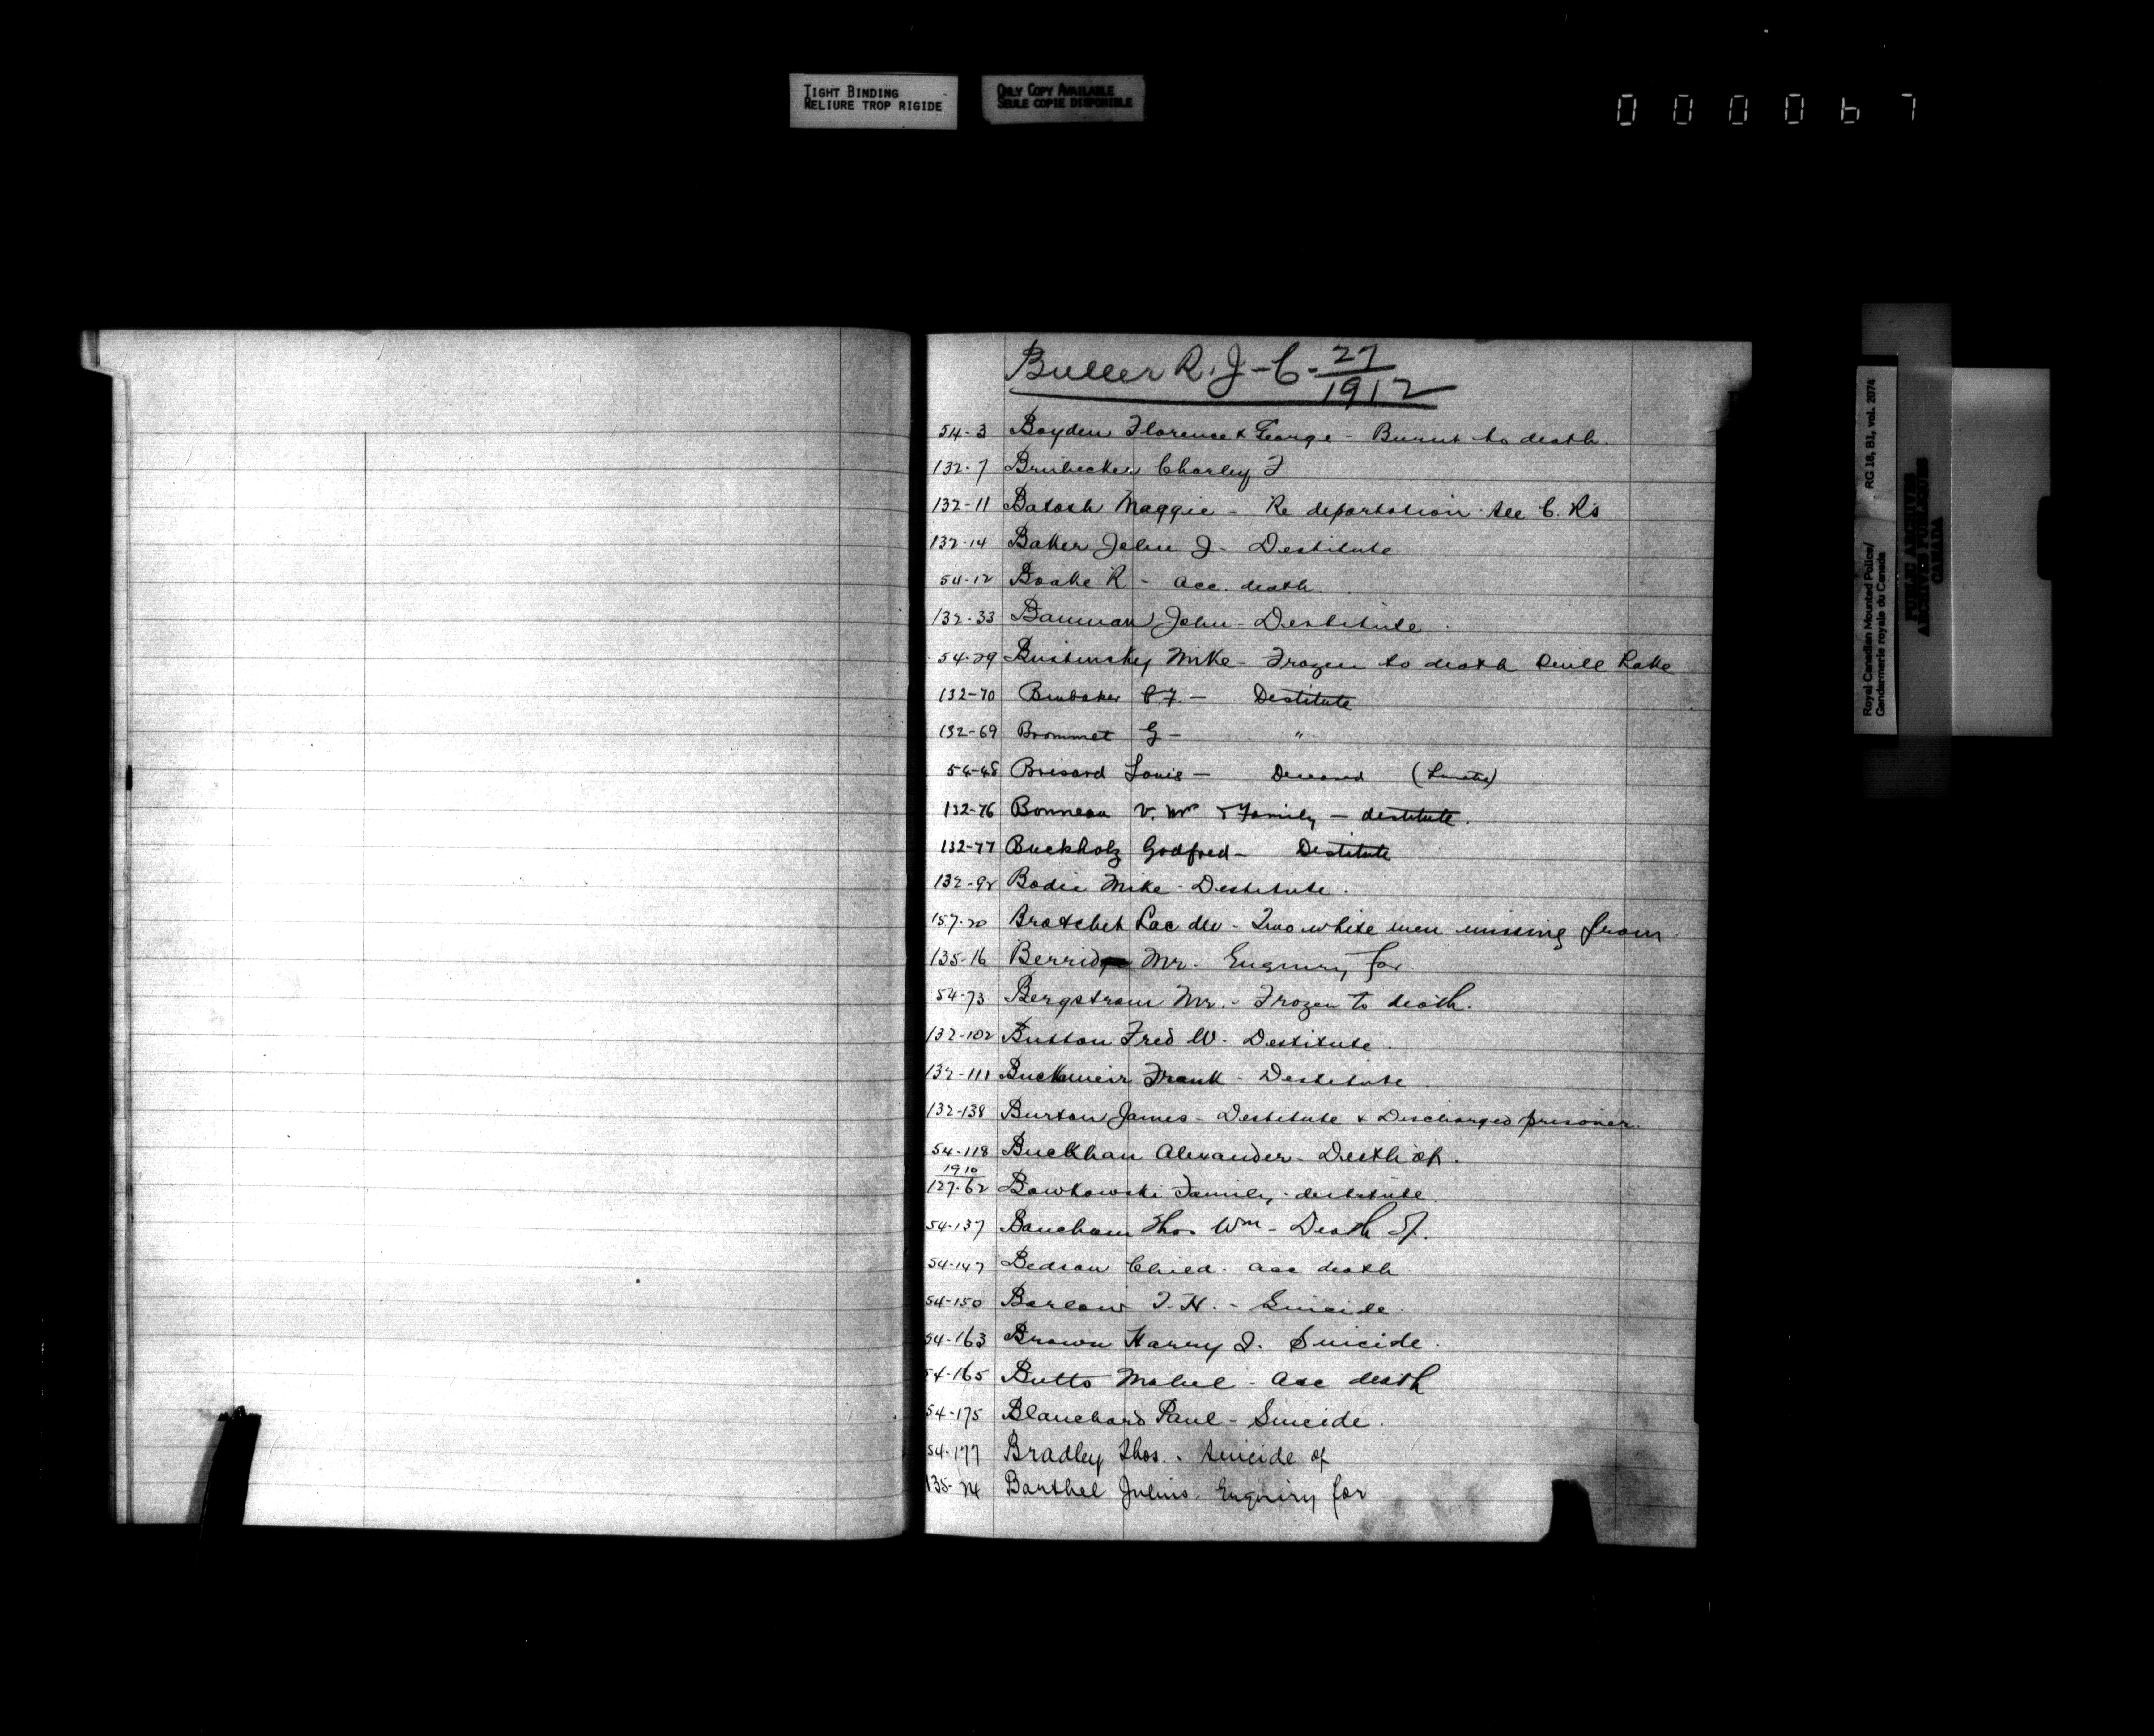 TIGHT BINDING
RELIURE TROP RIGIDE
ONLY COPY AVAILABLE
SEULE COPIE DISPONIBLE
000067
Buller R. J - C - 27/1912
54-3 Boyden Florence & George - Burnt to death.
132-7 Brubecker Charley F
132-11 Batosh Maggie - Re deportation see C. R's
132-14 Baker John J - Destitute
54-12 Boake R - acc. death
132-33 Bauman John - Destitute
54-29 Mike - Frozen to death Quill Lake
132-70 Brubaker C.F. - Destitute
132-69 Brommet G - "
54-48 Brisard Louis - Deceased (Lunatic)
132-76 Bonneau V. Mr & Family - destitute.
132-77 Buckholz Godfred - Destitute
132-92 Bodie Mike - Destitute.
157-20 Brochet Lac du - Two white men missing from
135-16 Mr. Enquiry for
54-73 Bergstrom Mr. - Frozen to death.
132-102 Button Fred W. Destitute.
132-111 Buckmeir Frank - Destitute
132-138 Burton James - Destitute & Discharged prisoner.
54-118 Buckhan Alexander - Death of.
1910
127-62 Bowkowski Family - destitute
54-137 Baucham Thos Wm - Death of.
54-147 Bedson Child. acc death
54-150 Barlow T. H. - Suicide.
54-163 Brown Harry J. Suicide.
54-165 Butts Mabel - Acc death
54-175 Blanchard Paul - Suicide.
54-177 Bradley Thos. - Suicide of
135-24 Barthel Julius. Enquiry for
Royal Canadian Mounted Police/ RG 18, B1, vol. 2074
Gendarmerie royale du Canada
PUBLIC ARCHIVES
ARCHIVES PUBLIQUES
CANADA